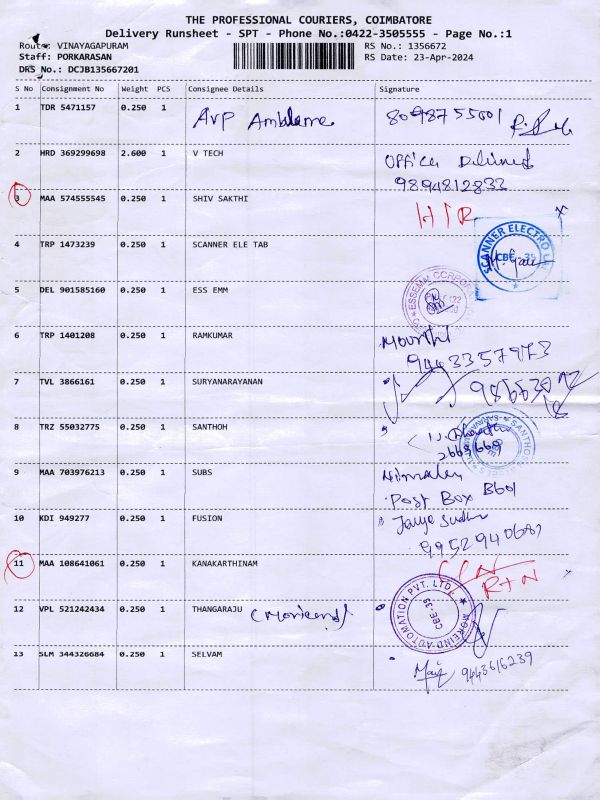 THE PROFESSIONAL COURIERS, COIMBATORE
Delivery Runsheet - SPT - Phone No.:0422-3505555 - Page No.:1
Route: VINAYAGAPURAM RS No.: 1356672
Staff: PORKARASAN RS Date: 23-Apr-2024
DRS No.: DCJB135667201
S No Consignment No Weight PCS Consignee Details Signature
1 TDR 5471157 0.250 1 AVP 8098755001
2 HRD 369299698 2.600 1 V TECH Office
9894812832
3 MAA 574555545 0.250 1 SHIV SAKTHI
4 TRP 1473239 0.250 1 SCANNER ELE TAB SCANNER ELECTRO CBE - 35
5 DEL 901585160 0.250 1 ESS EMM ESSEMM CORPORAT
6 TRP 1401208 0.250 1 RAMKUMAR Mourthi
9443357973
7 TVL 3866161 0.250 1 SURYANARAYANAN
8 TRZ 55032775 0.250 1 SANTHOH
9 MAA 703976213 0.250 1 SUBS
Post Box
10 KDI 949277 0.250 1 FUSION
11 MAA 108641061 0.250 1 KANAKARTHINAM
12 VPL 521242434 0.250 1 THANGARAJU AUTOMATION PVT. LTD. CBE-35
13 SLM 344326684 0.250 1 SELVAM 9443616239